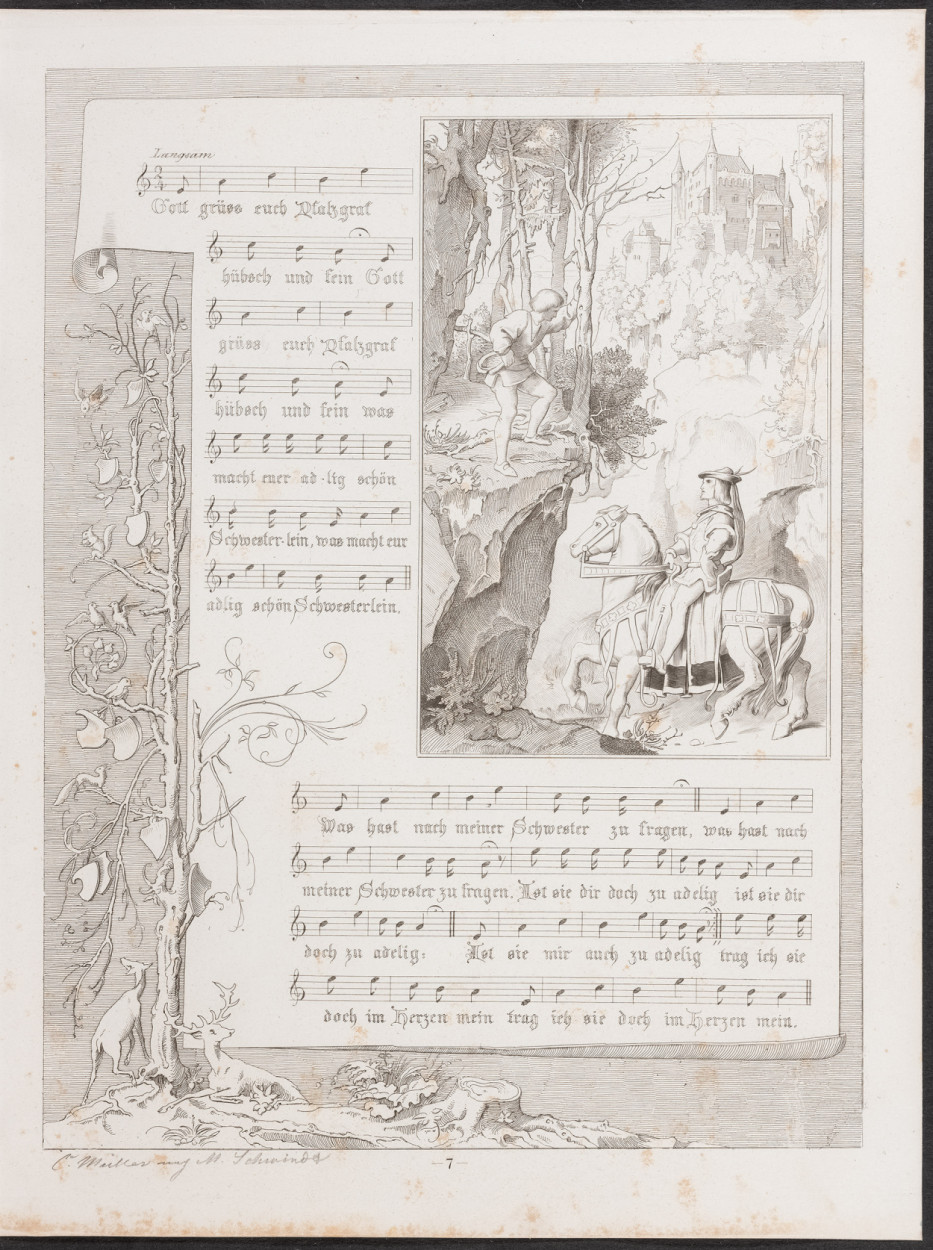 Langsam
Gott grüss euch Pfalzgraf
hübsch und fein Gott
grüss euch Pfalzgraf
hübsch und fein was
macht euer ad-lig schön
Schwester-lein, was macht eur
adlig schön Schwesterlein.
Was hast nach meiner Schwester zu fragen, was hast nach
meiner Schwester zu fragen. Ist sie dir doch zu adelig ist sie dir
doch zu adelig: Ist sie mir auch zu adelig trag ich sie
doch im Herzen mein trag ich sie doch im Herzen mein.
M. Schwindt
–7–